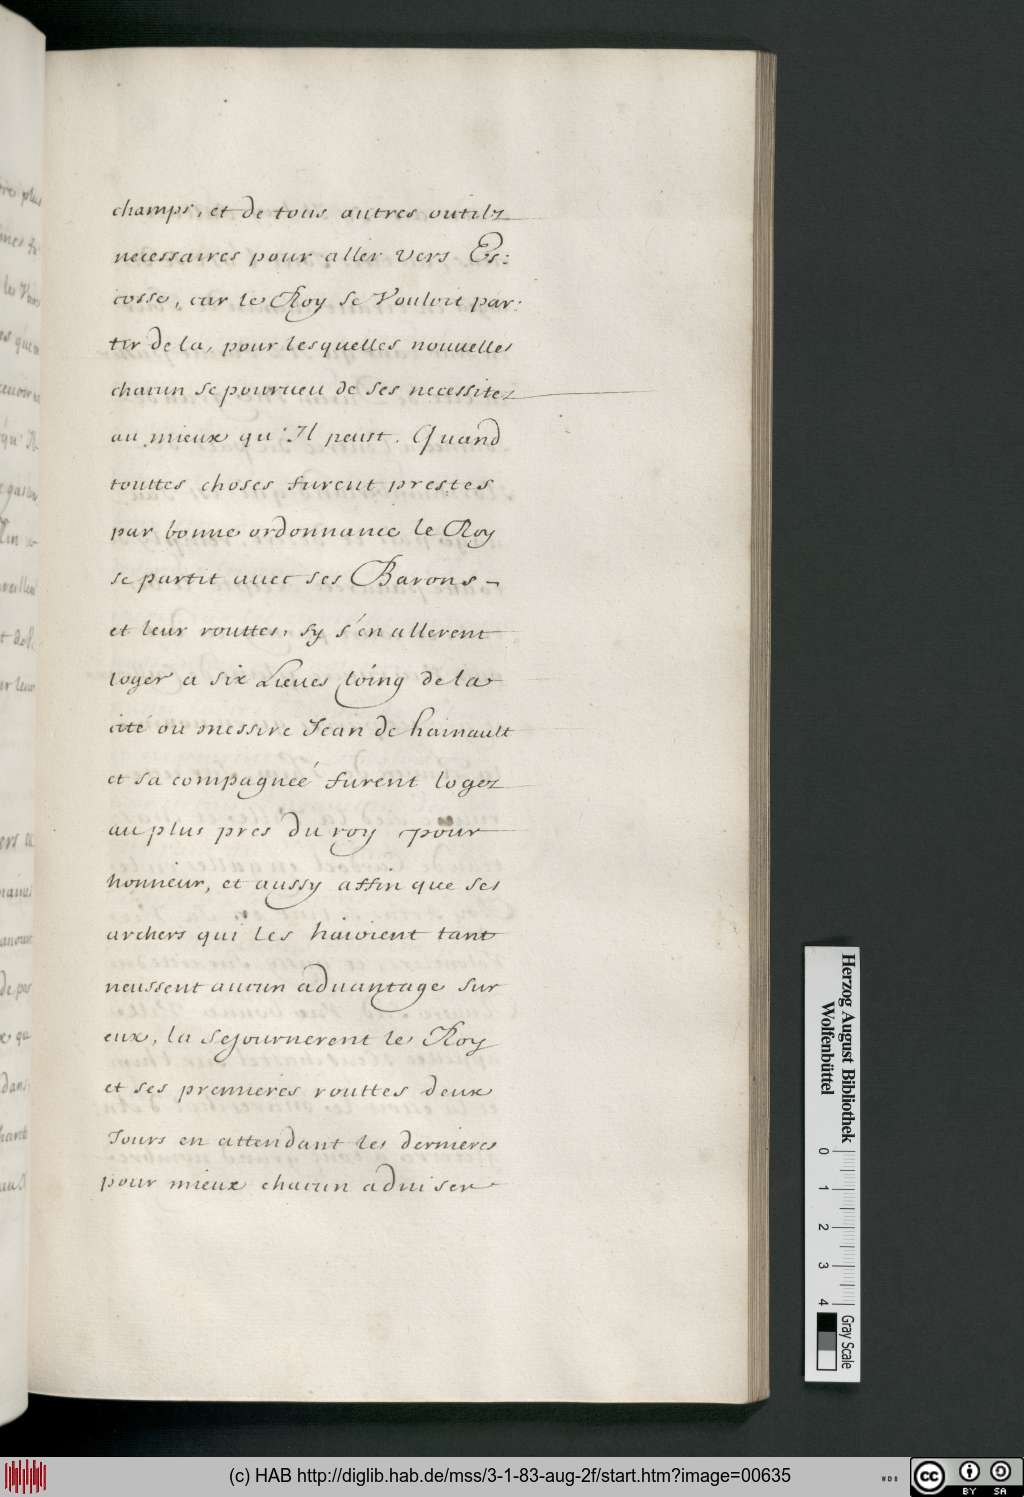 champs, et de tous autres outilz
necessaires pour aller vers Es:
cosse, car le Roy se Vouloit par:
tir de la, pour lesquelles nouuelles
chacun se pourueu de ses necessitez
au mieux qu'Il peust. Quand
touttes choses furent prestes
par bonne ordonnance le Roy
se partit auec ses Barons -
et leur routtes, sy s'en allerent
loger a six Lieues loing de la
cité ou messire Jean de hainault
et sa compagneé furent logez
au plus pres du roy pour
honneur, et aussy affin que ses
archers qui les haioient tant
neussent aucun aduantage sur
eux, la sejournerent le Roy
et ses premieres routtes deux
Jours en attendant les dernieres
pour mieux chacun aduiser
Herzog August Bibliothek
Wolfenbüttel
0 1 2 3 4
Gray Scale
(c) HAB http://diglib.hab.de/mss/3-1-83-aug-2f/start.htm?image=00635
cc BY SA